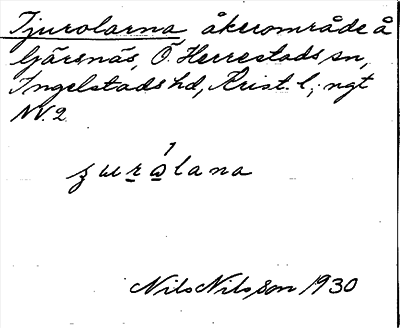 Tjurolarna, åkerområde å
Gärsnäs, Ö. Herrestads sn,
Ingelstads hd, Krist. l; ngt
NV. 2.
ʒurωlana
Nils Nilsson 1930